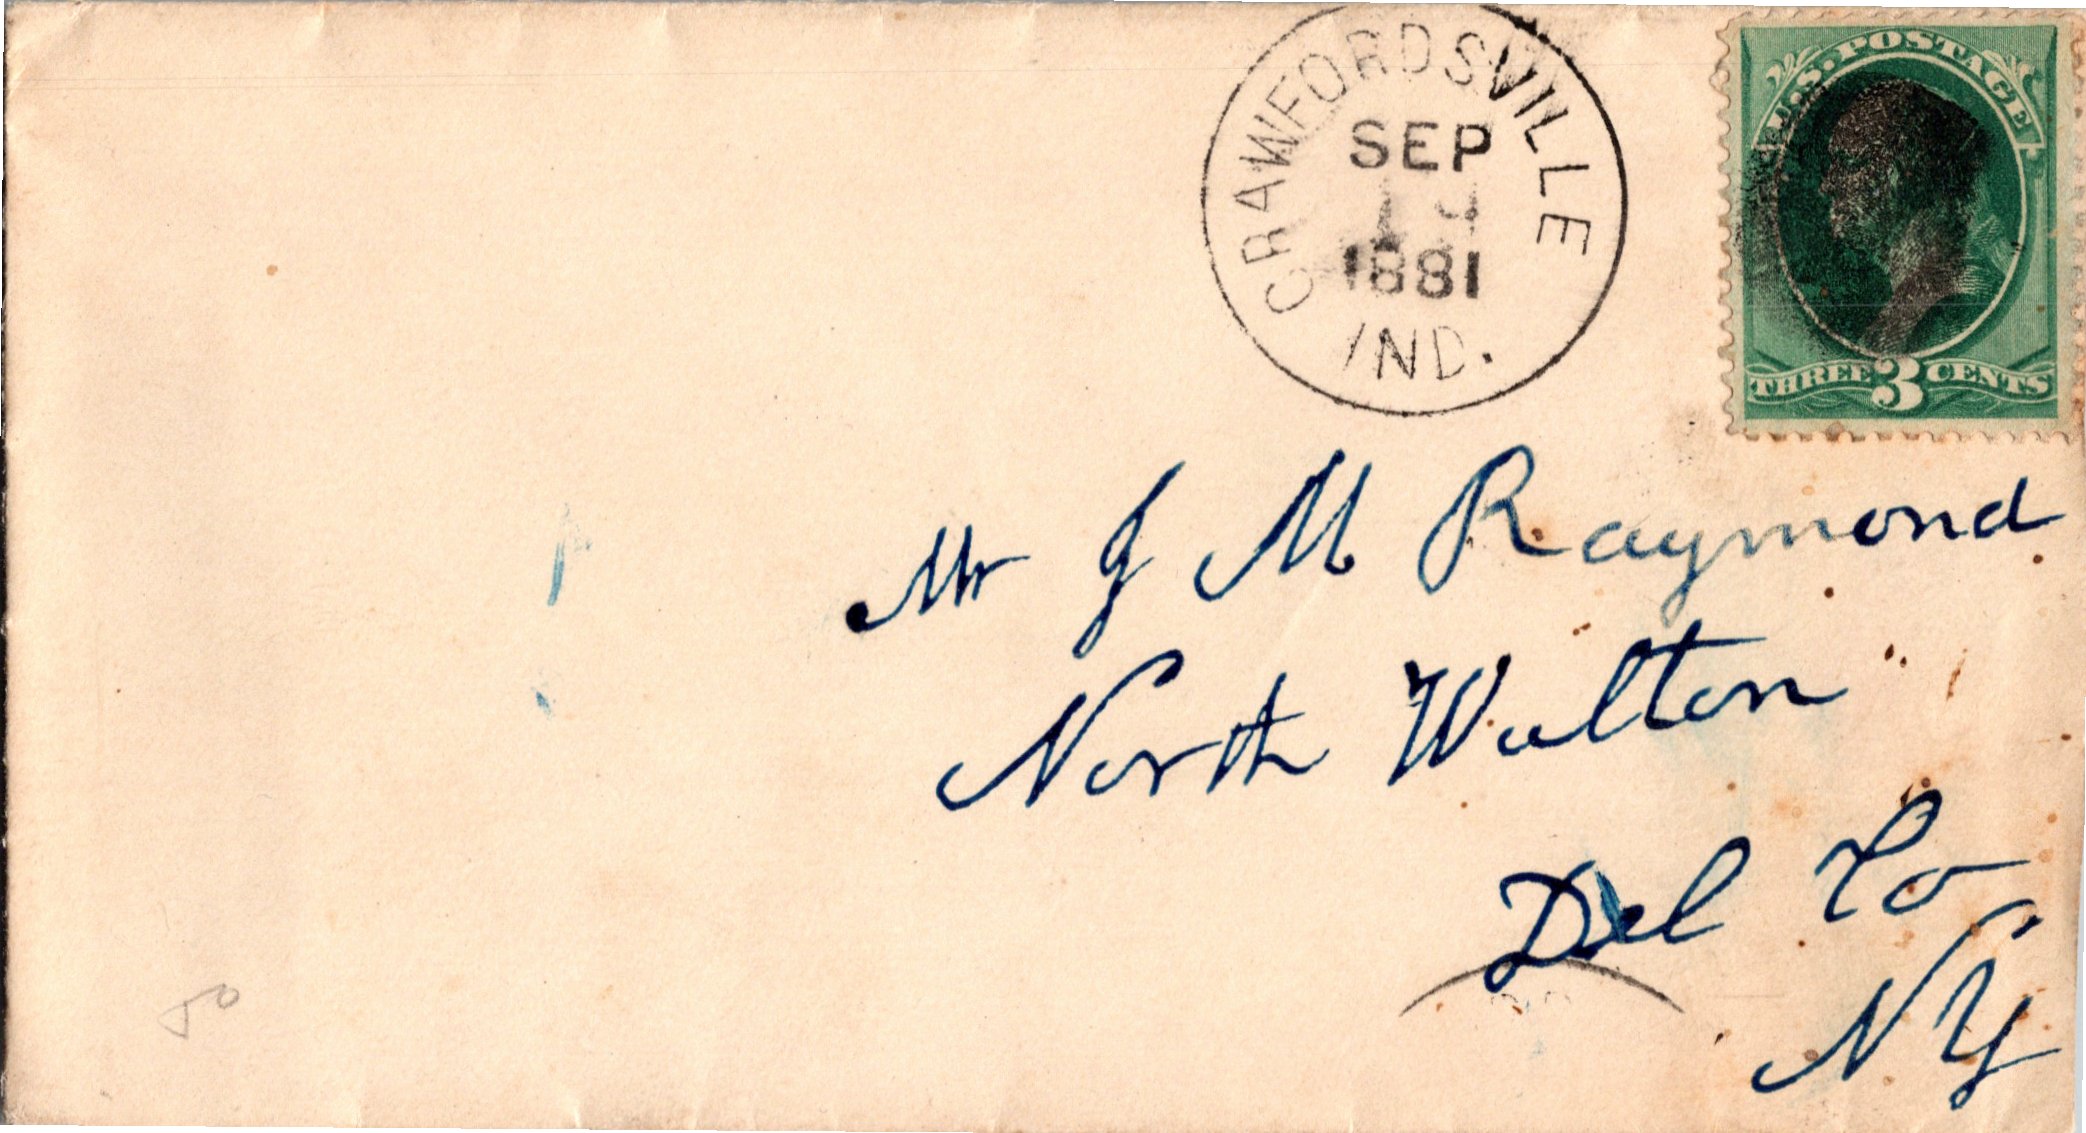 CRAWFORDSVILLE
SEP
1881
IND.
U.S. POSTAGE
THREE 3 CENTS
Mr J M Raymond
North Walton
Del Co
NY